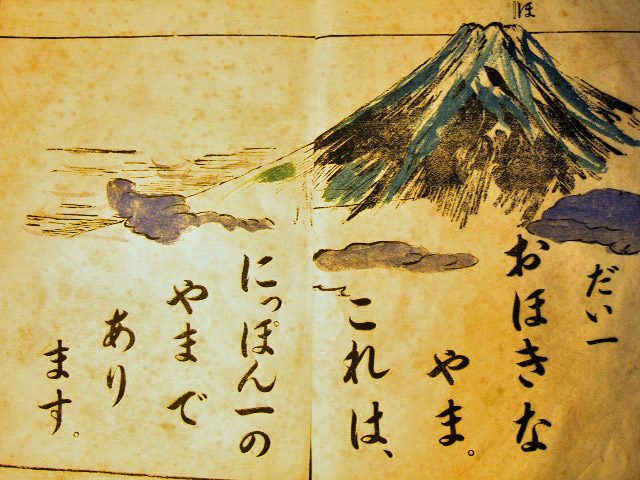 だい一
おほきな
やま。
これは、
にっぽん一の
やまで
あり
ます。